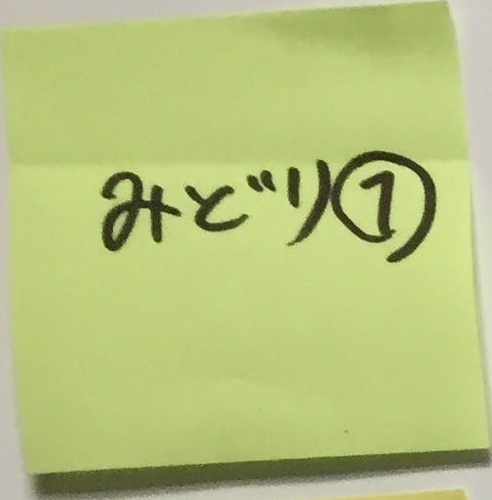 みどり①